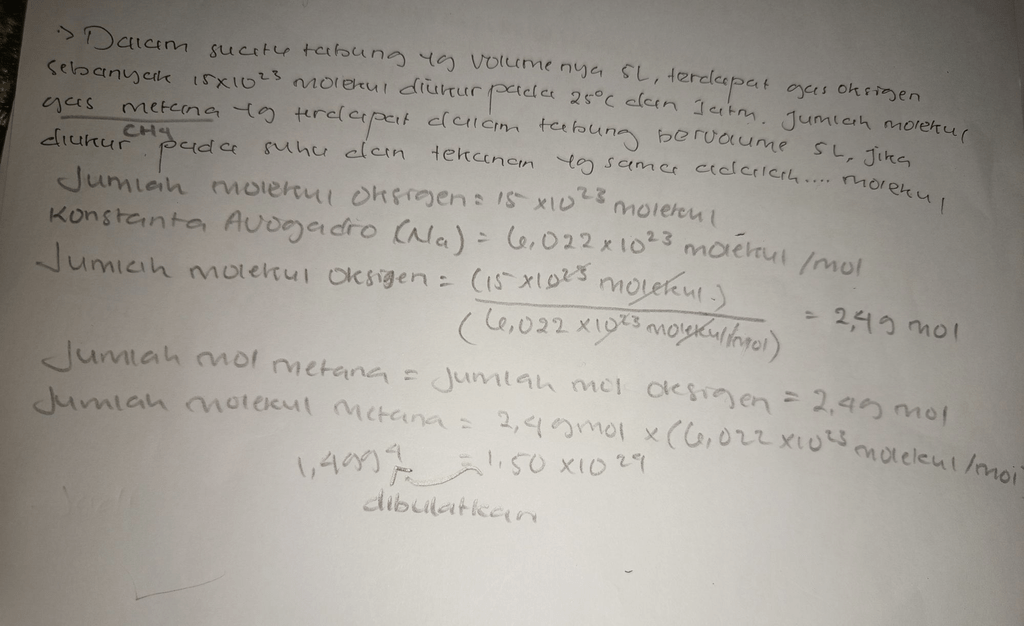 :> Dalam suatu tabung yg volumenya 5L, terdapat gas oksigen
sebanyak 15x10²³ molekul diukur pada 25°C dan 1atm. Jumlah molekul
gas metana yg terdapat dalam tabung bervolume 5L, jika
CH4
diukur pada suhu dan tekanan yg sama adalah.... molekul
Jumlah molekul oksigen = 15 x10²³ molekul
Konstanta Avogadro (Na) = 6,022 x 10²³ molekul /mol
Jumlah molekul oksigen = (15 x10²³ molekul.) = 2,49 mol
(6,022 x10²³ molekul/mol)
Jumlah mol metana = Jumlah mol oksigen = 2,49 mol
Jumlah molekul metana = 2,49 mol x (6,022 x10²³ molekul/mol
1,4994 = 1,50 x10²⁴
dibulatkan